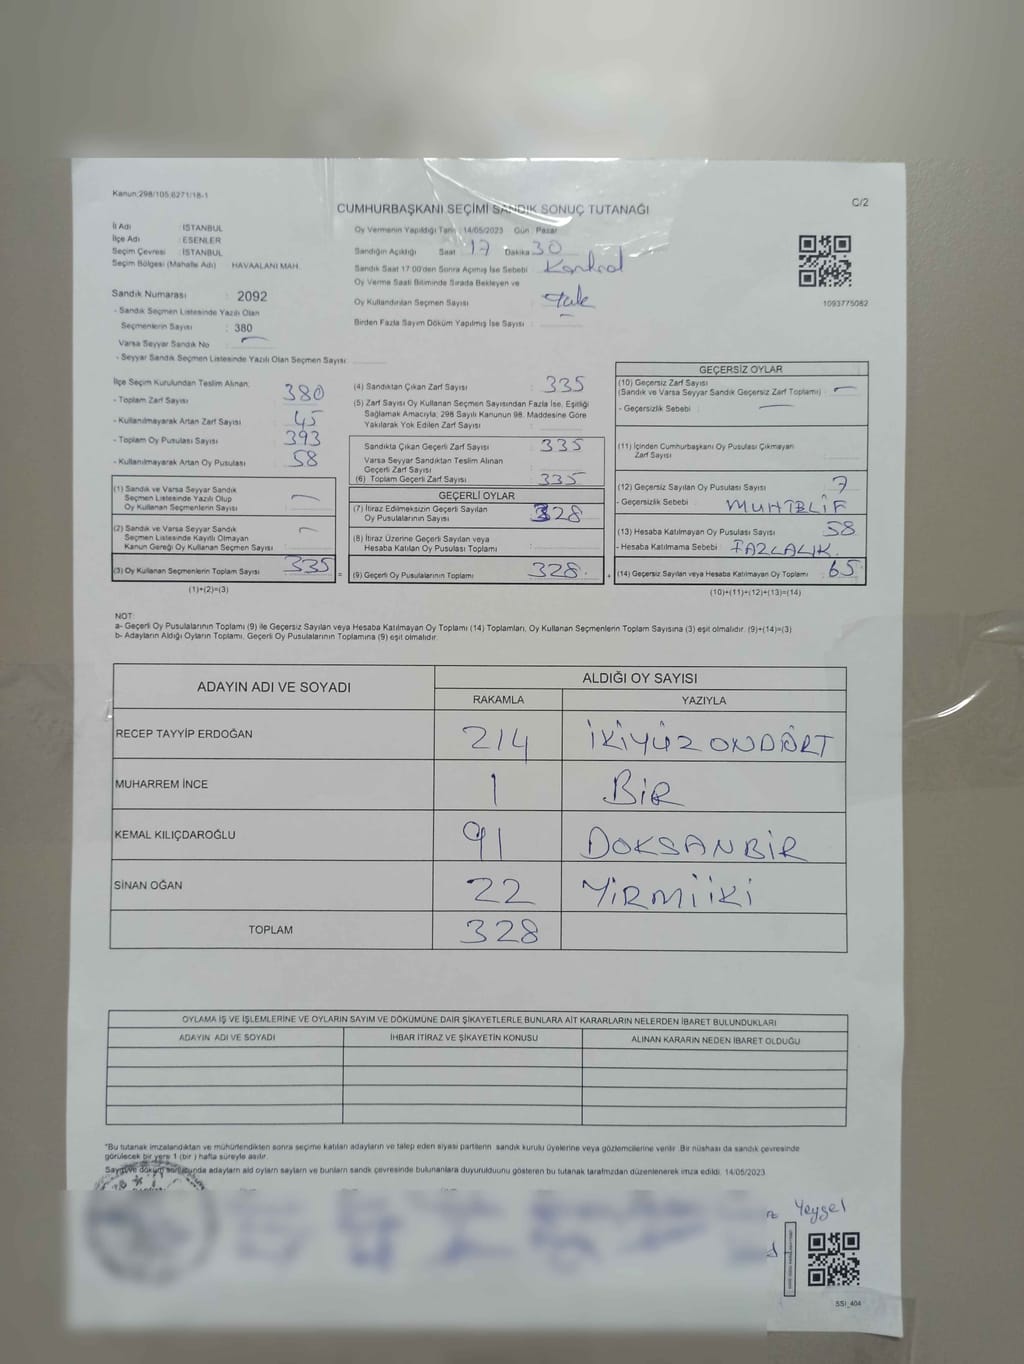 Kanun:298/105,6271/18-1
C/2
CUMHURBAŞKANI SEÇİMİ SANDIK SONUÇ TUTANAĞI
İl Adı : İSTANBUL
İlçe Adı : ESENLER
Seçim Çevresi : İSTANBUL
Seçim Bölgesi (Mahalle Adı) HAVAALANI MAH.
Sandık Numarası : 2092
- Sandık Seçmen Listesinde Yazılı Olan
Seçmenlerin Sayısı : 380
Varsa Seyyar Sandık No :
- Seyyar Sandık Seçmen Listesinde Yazılı Olan Seçmen Sayısı:
Oy Vermenin Yapıldığı Tarih : 14/05/2023 Gün : Pazar
Sandığın Açıldığı Saat 17 Dakika 30
Sandık Saat 17:00'den Sonra Açılmış İse Sebebi :
Oy Verme Saati Bitiminde Sırada Bekleyen ve
Oy Kullandırılan Seçmen Sayısı
Birden Fazla Sayım Döküm Yapılmış İse Sayısı :
1093775082
İlçe Seçim Kurulundan Teslim Alınan:
- Toplam Zarf Sayısı : 380
- Kullanılmayarak Artan Zarf Sayısı : 45
- Toplam Oy Pusulası Sayısı : 393
- Kullanılmayarak Artan Oy Pusulası : 58
(1) Sandık ve Varsa Seyyar Sandık
Seçmen Listesinde Yazılı Olup
Oy Kullanan Seçmenlerin Sayısı :
(2) Sandık ve Varsa Seyyar Sandık
Seçmen Listesinde Kayıtlı Olmayan
Kanun Gereği Oy Kullanan Seçmen Sayısı :
(3) Oy Kullanan Seçmenlerin Toplam Sayısı : 335
(1)+(2)=(3)
(4) Sandıktan Çıkan Zarf Sayısı : 335
(5) Zarf Sayısı Oy Kullanan Seçmen Sayısından Fazla İse, Eşitliği
Sağlamak Amacıyla; 298 Sayılı Kanunun 98. Maddesine Göre
Yakılarak Yok Edilen Zarf Sayısı :
Sandıkta Çıkan Geçerli Zarf Sayısı : 335
Varsa Seyyar Sandıktan Teslim Alınan
Geçerli Zarf Sayısı :
(6) Toplam Geçerli Zarf Sayısı : 335
GEÇERLİ OYLAR
(7) İtiraz Edilmeksizin Geçerli Sayılan
Oy Pusulalarının Sayısı : 328
(8) İtiraz Üzerine Geçerli Sayılan veya
Hesaba Katılan Oy Pusulası Toplamı :
(9) Geçerli Oy Pusulalarının Toplamı : 328
GEÇERSİZ OYLAR
(10) Geçersiz Zarf Sayısı
(Sandık ve Varsa Seyyar Sandık Geçersiz Zarf Toplamı) :
- Geçersizlik Sebebi :
(11) İçinden Cumhurbaşkanı Oy Pusulası Çıkmayan
Zarf Sayısı :
(12) Geçersiz Sayılan Oy Pusulası Sayısı : 7
- Geçersizlik Sebebi : MUHTELİF
(13) Hesaba Katılmayan Oy Pusulası Sayısı : 58
- Hesaba Katılmama Sebebi : FAZLALIK
(14) Geçersiz Sayılan veya Hesaba Katılmayan Oy Toplamı : 65
(10)+(11)+(12)+(13)=(14)
NOT:
a- Geçerli Oy Pusulalarının Toplamı (9) ile Geçersiz Sayılan veya Hesaba Katılmayan Oy Toplamı (14) Toplamları, Oy Kullanan Seçmenlerin Toplam Sayısına (3) eşit olmalıdır. (9)+(14)=(3)
b- Adayların Aldığı Oyların Toplamı, Geçerli Oy Pusulalarının Toplamına (9) eşit olmalıdır.
ADAYIN ADI VE SOYADI ALDIĞI OY SAYISI
RAKAMLA YAZIYLA
RECEP TAYYİP ERDOĞAN 214 İKİYÜZ ONDÖRT
MUHARREM İNCE 1 BİR
KEMAL KILIÇDAROĞLU 91 DOKSANBİR
SİNAN OĞAN 22 YİRMİİKİ
TOPLAM 328
OYLAMA İŞ VE İŞLEMLERİNE VE OYLARIN SAYIM VE DÖKÜMÜNE DAİR ŞİKAYETLERLE BUNLARA AİT KARARLARIN NELERDEN İBARET BULUNDUKLARI
ADAYIN ADI VE SOYADI İHBAR İTİRAZ VE ŞİKAYETİN KONUSU ALINAN KARARIN NEDEN İBARET OLDUĞU
*Bu tutanak imzalandıktan ve mühürlendikten sonra seçime katılan adayların ve talep eden siyasi partilerin sandık kurulu üyelerine veya gözlemcilerine verilir. Bir nüshası da sandık çevresinde
görülecek bir yere 1 (bir ) hafta süreyle asılır.
Sayım ve döküm sonucunda adayların ald oyların sayıları ve bunların sandık çevresinde bulunanlara duyurulduunu gösteren bu tutanak tarafımızdan düzenlenerek imza edildi. 14/05/2023
SSI_404